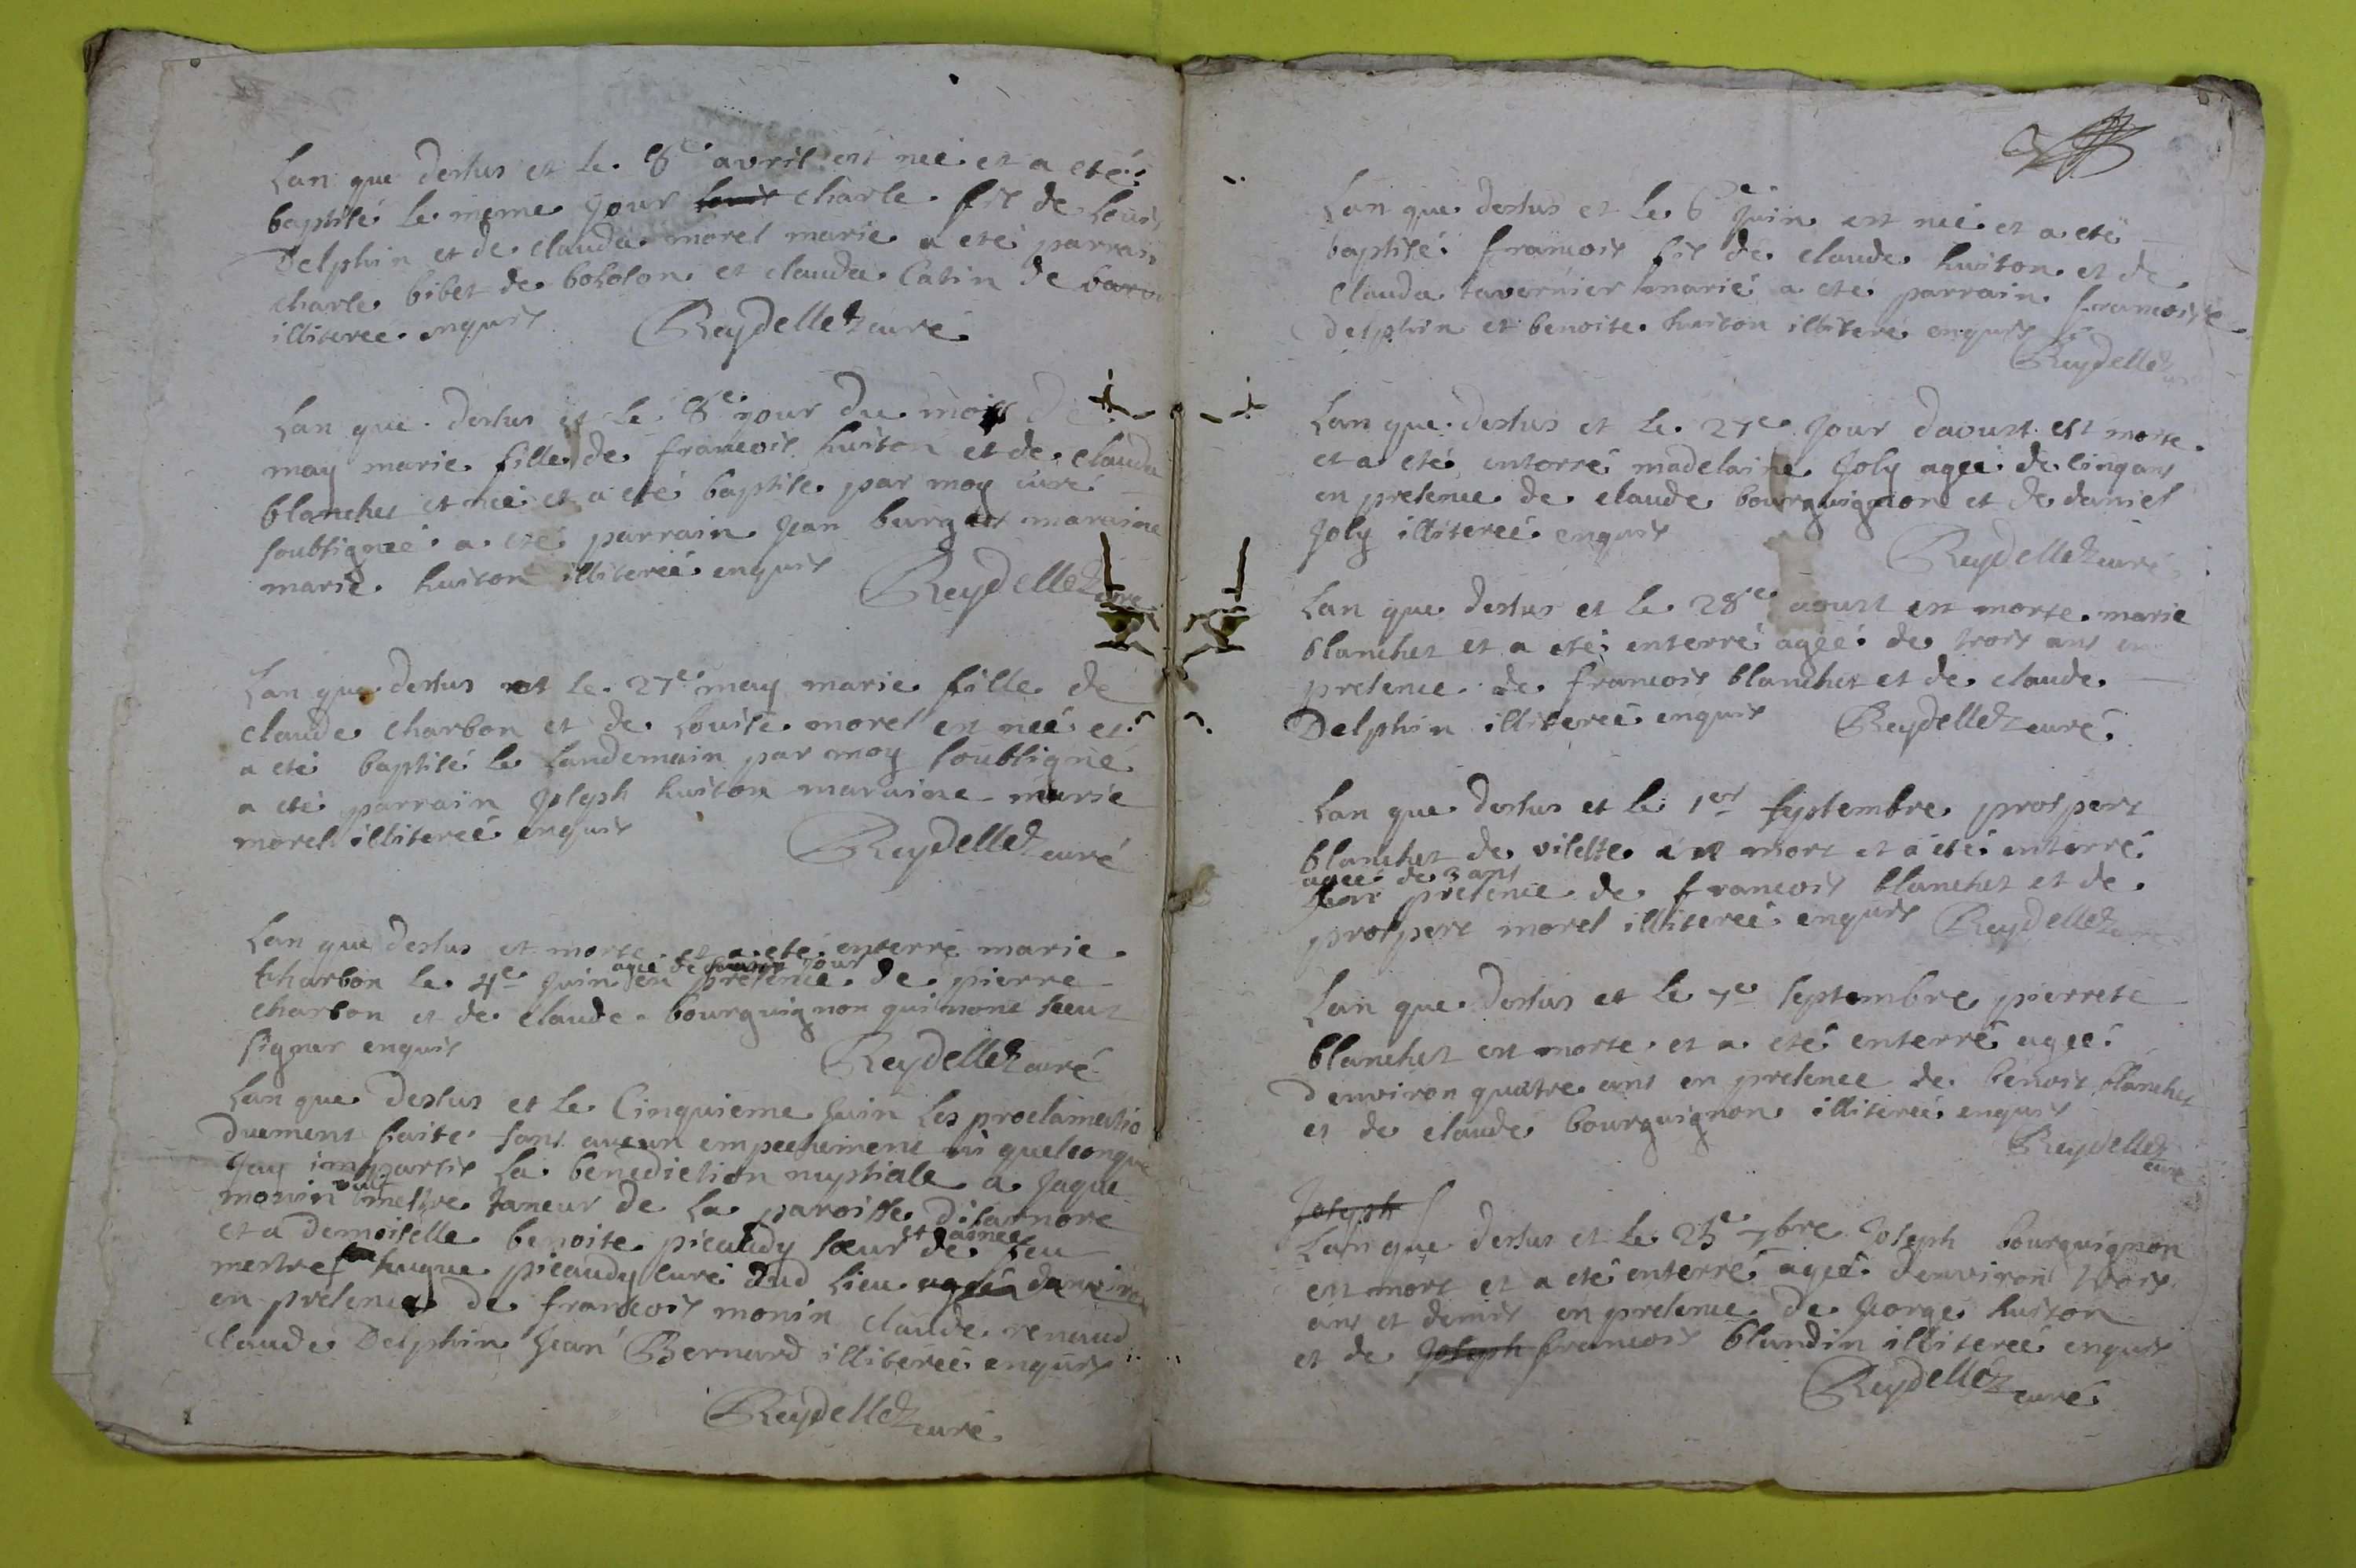 Lan que dessus et le 8e avril est neé et a eté
baptisé le meme jour louis charle fils de Louis
Delphin et de clauda morel marie a eté parrain
charle bibet de boholon et clauda Catin de
illitereé enquis Reydellet curé
Lan que dessus et le 8e jour du mois de
may marie fille de francois huiton et de clauda
blanchet et neé et a eté baptise par moy curé
soubsigneé a eté parrain jean burget maraine
marie huiton illitereé enquis Reydellet curé
Lan que dessus et le 27e may marie fille de
claude charbon et de Louise morel est neé et
a eté baptisé le landemain par moy soubsigné
a eté parrain joseph huiton maraine marie
morel illitereé enquis Reydellet curé
Lan que dessus et morte et a eté enterré marie
ageé de jour
charbon le 4e juin en presence de pierre
charbon et de claude bourguignon qui nont sceut
signer enquis Reydellet curé
Lan que dessus et le Cinquieme juin les proclamatio
duement faite sans aucun empechement ni quelconque
jay impartis la benediction nuptiale a jaque
monin metre taneur de la paroisse disarnore
et ainee
et a demoiselle benoite picaudy sœur de feu
mestre hugue picaudy curé dud lieu ageé denviron
en presence de francois monin claude renaud
claude Delphin jean Bernard illitereé enquis
Reydellet curé
Lan que dessus et le 6e juin est neé et a eté
baptisé francois fils de claude huiton et de
clauda tavernier marié a eté parrain francoise
Delphin et benoite huiton illiteré enquis
Reydellet
Lan que dessus et le 27e jour daoust est morte
et a eté enterré madelaine joly ageé de cinq ans
en presence de claude bourguignon et de daniel
joly illitereé enquis Reydellet curé
Lan que dessus et le 28e aoust est morte marie
blanchet et a eté enterré ageé de trois ans en
presence de francois blanchet et de claude
Delphin illitereé enquis Reydellet curé
Lan que dessus et le 1er septembre prospert
blanchet de vilette est mort et a eté enterré
ageé de 3 ans
presence de francois blanchet et de
prospert morel illitereé enquis Reydellet curé
Lan que dessus et le 7e septembre pierrete
blanchet est morte et a eté enterré ageé
denviron quatre ans en presence de benoit blanchet
et de claude bourguignon illitereé enquis
Reydellet curé
Joseph
Lan que dessus et le 25e 7bre Joseph bourguignon
est mort et a eté enterré ageé denviron trois
ans et demis en presence de george huiton
et de Joseph francois blandin illitereé enquis
Reydellet curé